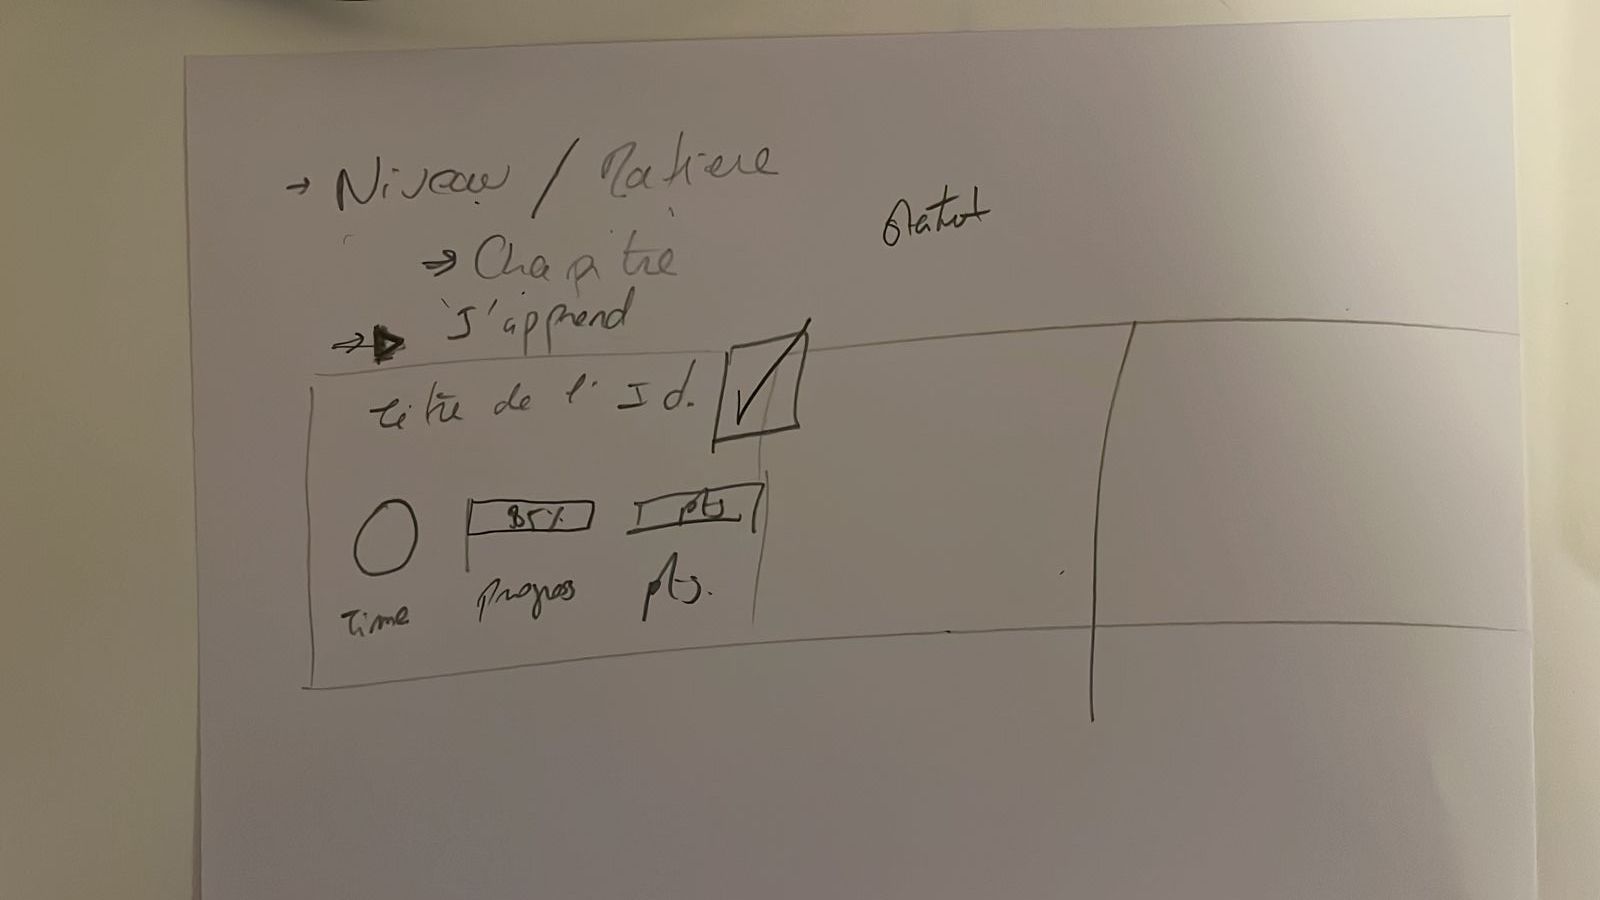 → Niveau / Matiere
⇒ Chapitre
Statut
⇒ J'apprend
titre de l'Id.
85%
pts
Time
Progress
pts.